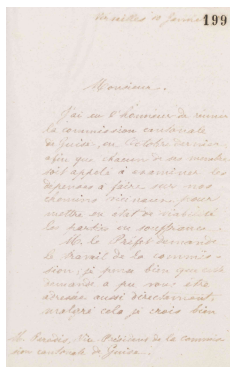 Versailles 10 Janvier 199
Monsieur,
J'ai eu l'honneur de réunir
la commission cantonale
de Guise, en Octobre dernier,
afin que chacun de ses membres
soit appelé à examiner les
dépenses à faire sur nos
chemins vicinaux pour
mettre en état de viabilité
les parties en souffrance.
M. le Préfet demande
le travail de la commis-
sion, je pense bien que cette
demande a pu vous être
adressée aussi directement,
malgré cela je crois bien
M. Président de la commission
cantonale de Guise.